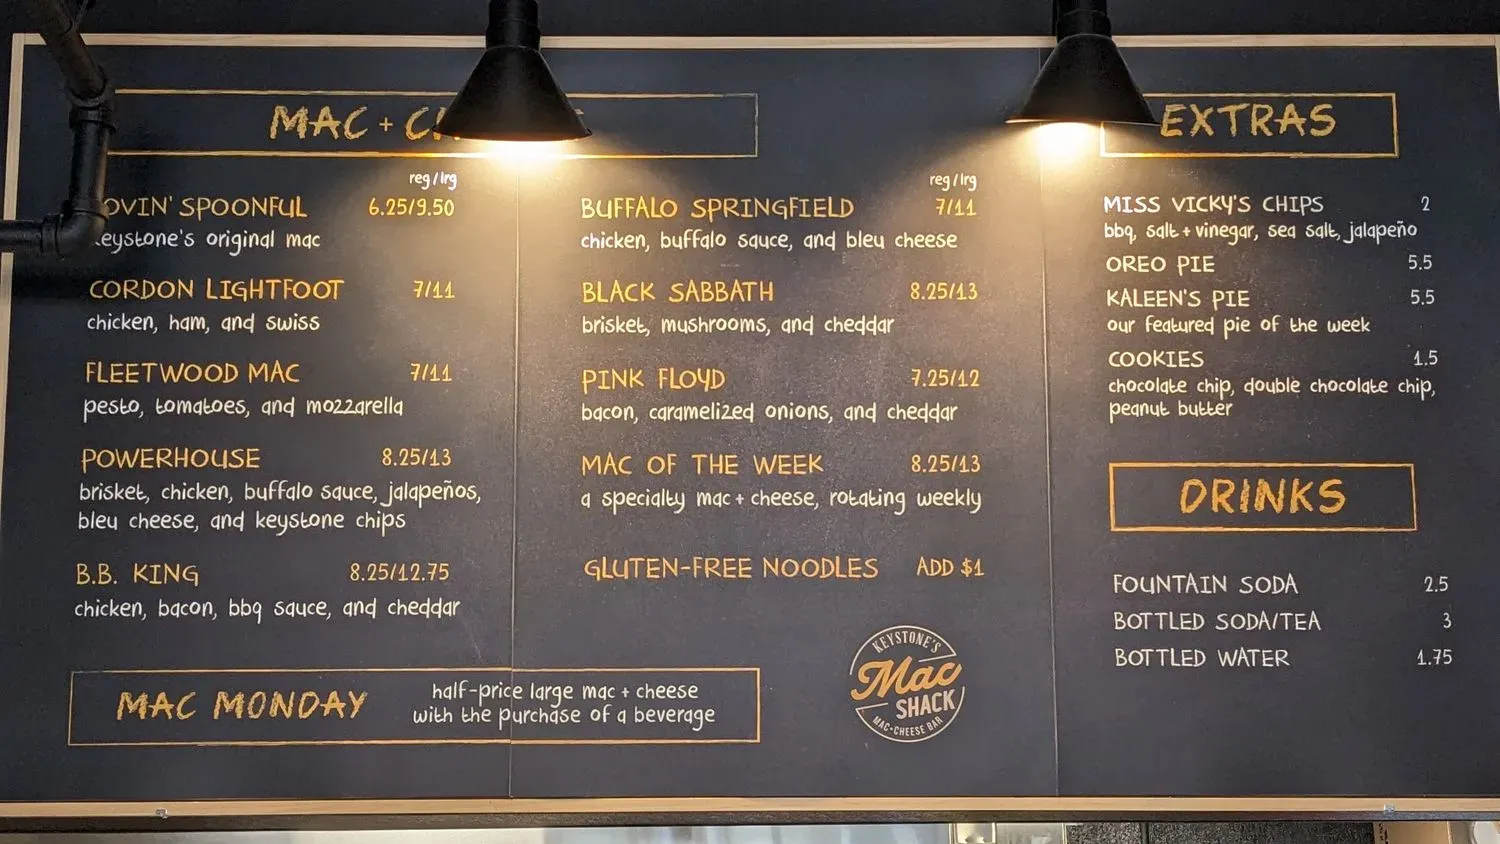 MAC +
reg/lrg
OVIN' SPOONFUL 6.25/9.50
keystone's original mac
CORDON LIGHTFOOT 7/11
chicken, ham, and swiss
FLEETWOOD MAC 7/11
pesto, tomatoes, and mozzarella
POWERHOUSE 8.25/13
brisket, chicken, buffalo sauce, jalapeños,
bleu cheese, and keystone chips
B.B. KING 8.25/12.75
chicken, bacon, bbq sauce, and cheddar
MAC MONDAY
half-price large mac + cheese
with the purchase of a beverage
reg/lrg
BUFFALO SPRINGFIELD 7/11
chicken, buffalo sauce, and bleu cheese
BLACK SABBATH 8.25/13
brisket, mushrooms, and cheddar
PINK FLOYD 7.25/12
bacon, caramelized onions, and cheddar
MAC OF THE WEEK 8.25/13
a specialty mac + cheese, rotating weekly
GLUTEN-FREE NOODLES ADD $1
KEYSTONE'S
Mac
SHACK
MAC-CHEESE BAR
EXTRAS
MISS VICKY'S CHIPS 2
bbq, salt + vinegar, sea salt, jalapeño
OREO PIE 5.5
KALEEN'S PIE 5.5
our featured pie of the week
COOKIES 1.5
chocolate chip, double chocolate chip,
peanut butter
DRINKS
FOUNTAIN SODA 2.5
BOTTLED SODA/TEA 3
BOTTLED WATER 1.75